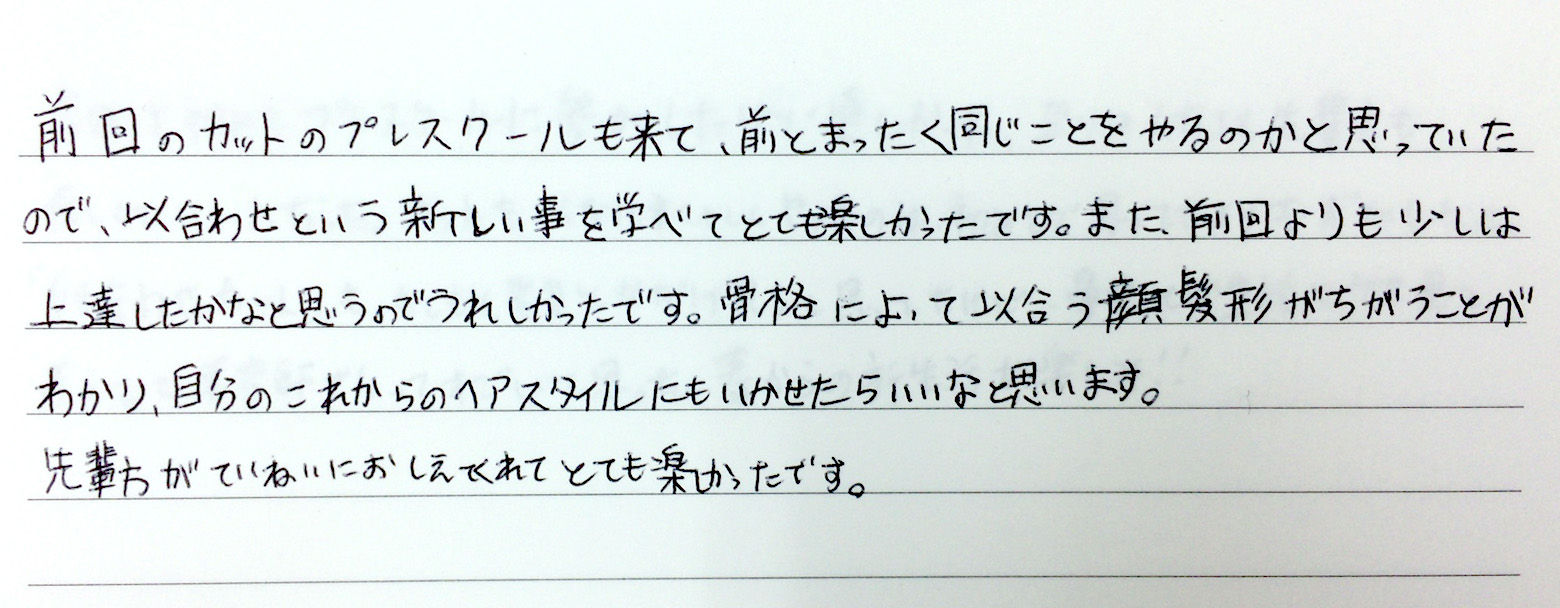 前回のカットのプレスクールも来て、前とまったく同じことをやるのかと思っていた
ので、以合わせという新しい事を学べてとても楽しかったです。また、前回よりも少しは
上達したかなと思うのでうれしかったです。骨格によって以合う顔髪形がちがうことが
わかり、自分のこれからのヘアスタイルにもいかせたらいいなと思います。
先輩方がていねいにおしえてくれてとても楽しかったです。